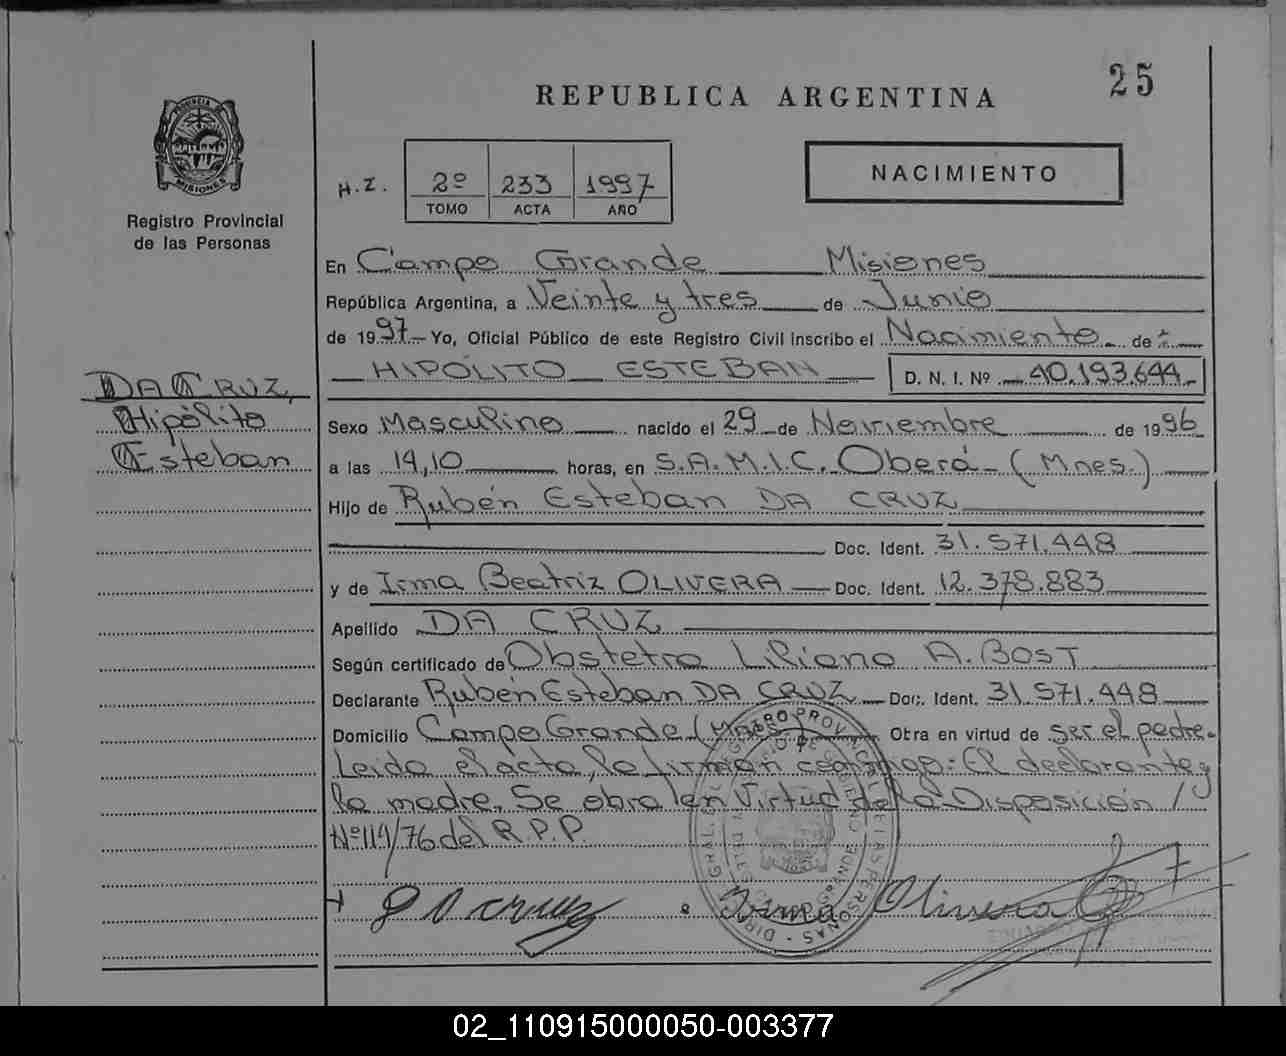 25
REPUBLICA ARGENTINA
PROVINCIA DE MISIONES
Registro Provincial
de las Personas
H.Z. 2º 233 1997
TOMO ACTA AÑO
NACIMIENTO
En Campo Grande Misiones
República Argentina, a Veinte y tres de Junio
de 1997 Yo, Oficial Público de este Registro Civil inscribo el Nacimiento de:
HIPÓLITO ESTEBAN D. N. I. Nº 40.193.644
DA CRUZ,
Hipólito
Esteban
Sexo Masculino nacido el 29 de Noviembre de 1996
a las 14,10 horas, en S.A.M.I.C. Oberá - (Mnes.)
Hijo de Rubén Esteban DA CRUZ
Doc. Ident. 31.571.448
y de Irma Beatriz OLIVERA Doc. Ident. 12.378.883
Apellido DA CRUZ
Según certificado de Obstetra Liliana A. BOST
Declarante Rubén Esteban DA CRUZ Doc. Ident. 31.571.448
Domicilio Campo Grande (Mnes) Obra en virtud de ser el padre.
Leido el acta, la firman conmigo: El declarante y
la madre. Se obra en Virtud de la Disposición /
Nº 114/76 del R.P.P.
Da cruz Irma Olivera
02_110915000050-003377